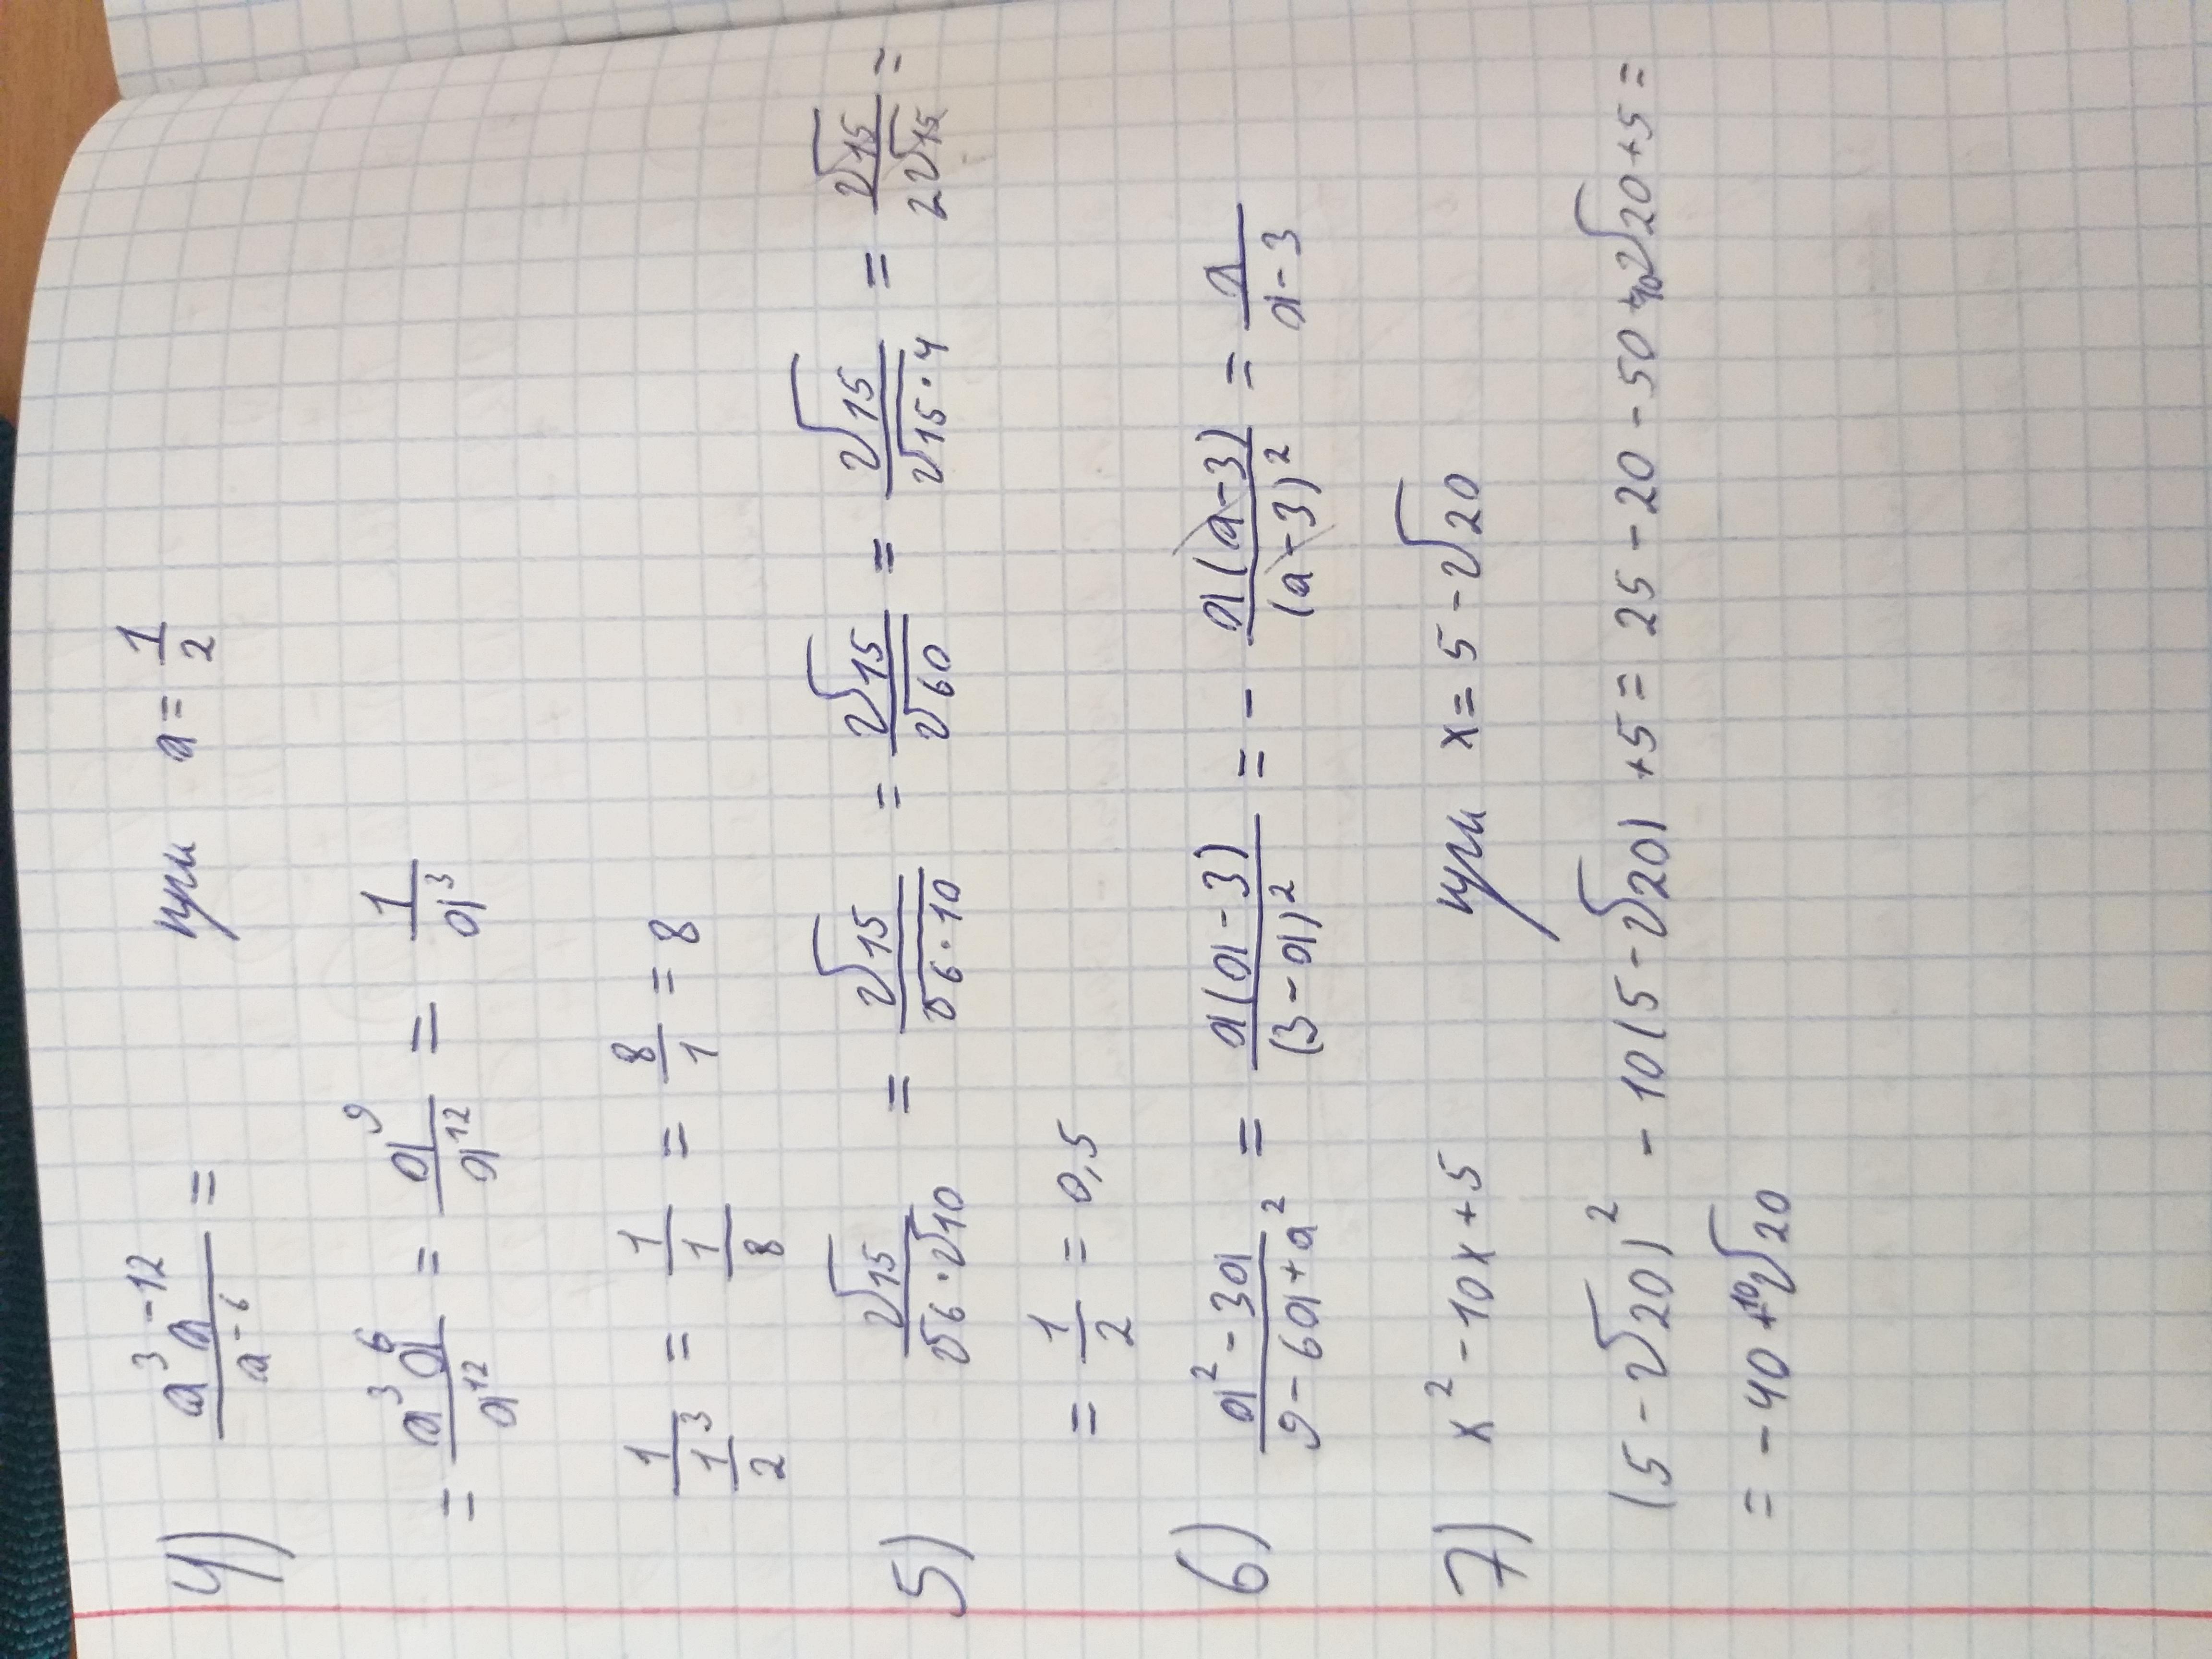 4) (a³a⁻¹²)/(a⁻⁶) = при a = 1/2
= (a³a⁶)/a¹² = a⁹/a¹² = 1/a³
1/(1/2)³ = 1/(1/8) = 8/1 = 8
5) √15/(√6·√10) = √15/√(6·10) = √15/√60 = √15/√(15·4) = √15/(2√15) =
= 1/2 = 0,5
6) (a²-3a)/(9-6a+a²) = (a(a-3))/(3-a)² = - (a(a-3))/(a-3)² = a/(a-3)
7) x²-10x+5 при x = 5-√20
(5-√20)² - 10(5-√20) +5 = 25-20-50+10√20+5 =
= -40+10√20